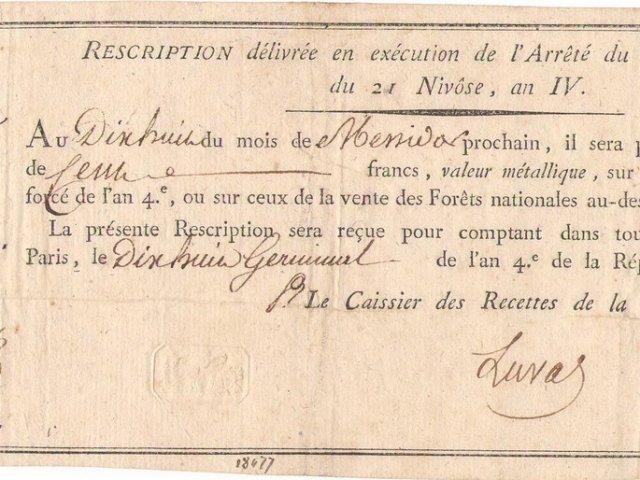 RESCRIPTION délivrée en exécution de l'Arrêté du
du 21 Nivôse, an IV.
AU Dixhuit du mois de Messidor prochain, il sera p
de francs, valeur métallique, sur
forcé de l'an 4.e, ou sur ceux de la vente des Forêts nationales au-des
La présente Rescription sera reçue pour comptant dans tou
Paris, le Dixhuit Germinal de l'an 4.e de la Rép
Le Caissier des Recettes de la
18477